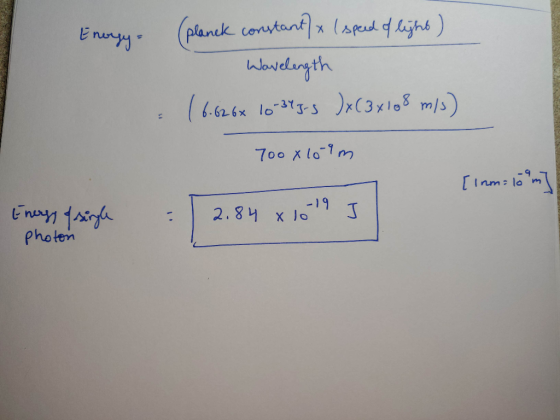 Energy = (planck constant) x (speed of light)
Wavelength
= (6.626 x 10⁻³⁴ J-S) x (3 x 10⁸ m/s)
700 x 10⁻⁹ m
[1 nm = 10⁻⁹ m]
Energy of single = 2.84 x 10⁻¹⁹ J
photon